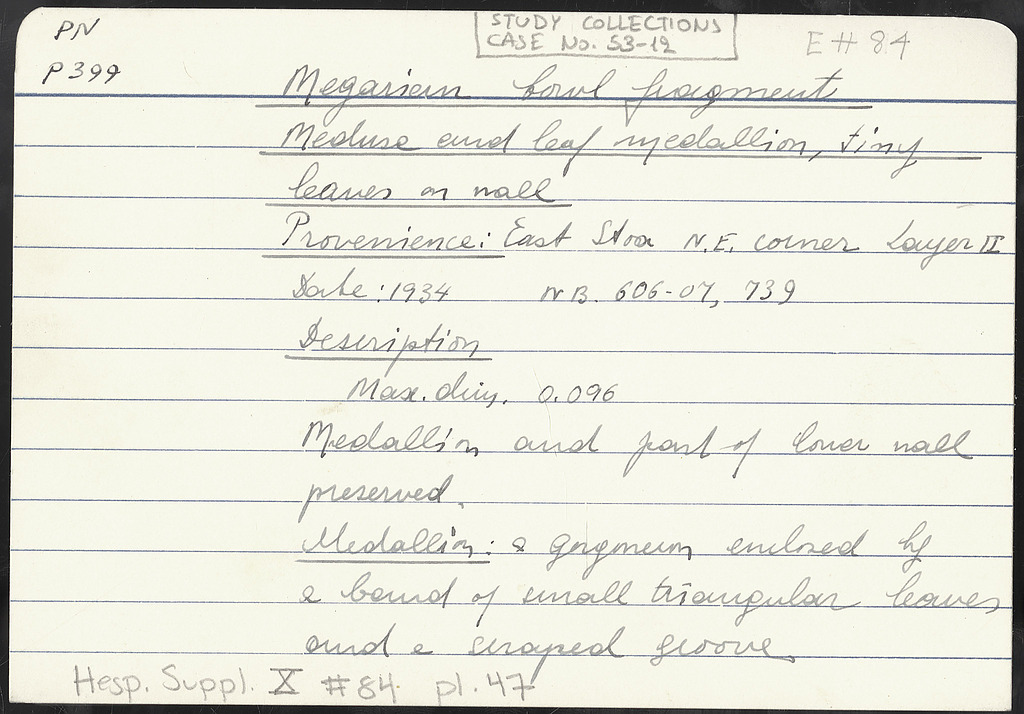 PN
P 399
STUDY COLLECTIONS
CASE No. S3-12
E # 84
Megarian bowl fragment
Medusa and leaf medallion, tiny
leaves on wall
Provenience: East Stoa N.E. corner Layer II
Date: 1934 NB. 606-07, 739
Description
Max. dim. 0.096
Medallion and part of lower wall
preserved.
Medallion: a gorgoneion enclosed by
a band of small triangular leaves
and a scraped groove.
Hesp. Suppl. X #84 pl. 47